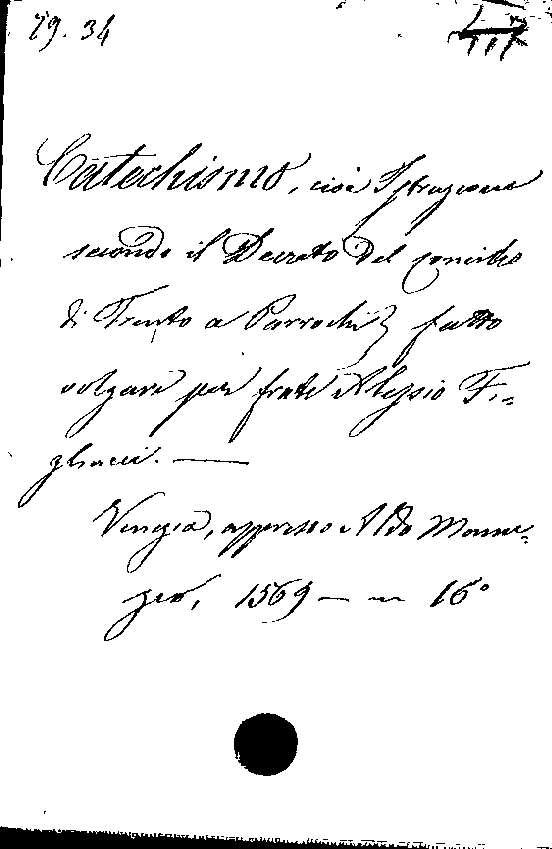 79. 34
Catechismo, cioè Istruzione
secondo il Decreto del concilio
di Trento a Parrochi, fatto
volgare per frate Alessio Fi=
gliucci. —
Venezia, appresso Aldo Manu=
zio, 1569 — in 16°